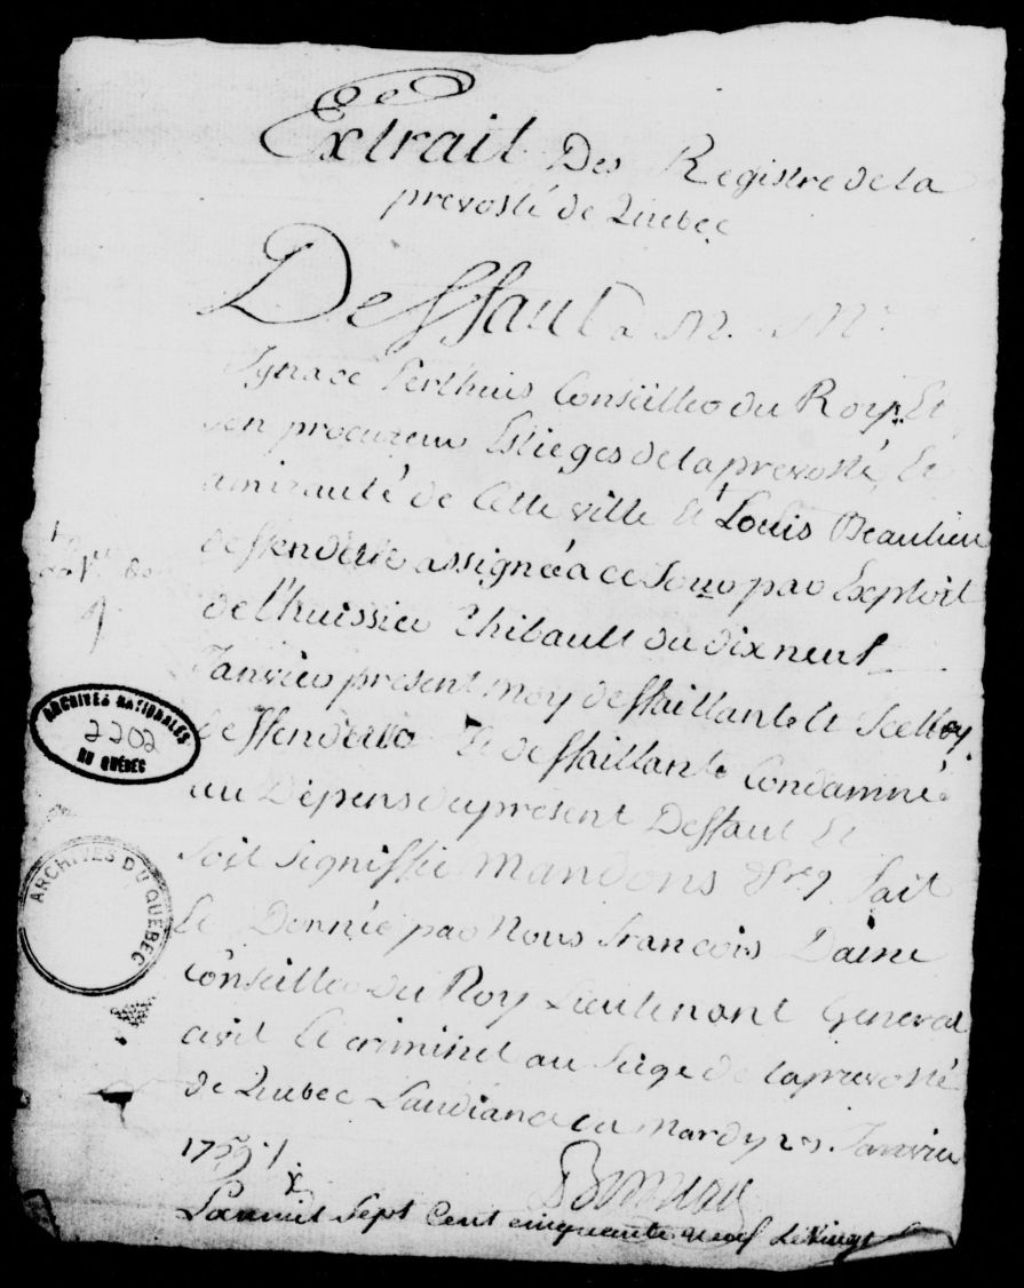 Extrait Des Registre de la
prevosté de Quebec
Deffaut a M. Me
Ignace Perthuis Conseiller du Roy Et
son procureur Es sieges de la prevosté Et
amirauté de Cette ville Et Louis Beaulieu
deffenderesse assignée a ce Jour par Exploit
de l'huissier Thibault du dix neuf
Janvier present moy deffaillante Et
deffenderesse Et deffaillante Condamné
au Depens du present Deffaut Et
soit signiffié Mandons &c fait
Et Donnée par Nous francois Daine
Conseiller Du Roy Lieutenant General
civil Et criminel au siege de la prevosté
de Quebec L'audiance du Mardy 23 Janvier
1759 ./.
L'an mil sept Cent cinquante neuf Le vingt
ARCHIVES NATIONALES
2202
DU QUÉBEC
ARCHIVES DU QUÉBEC